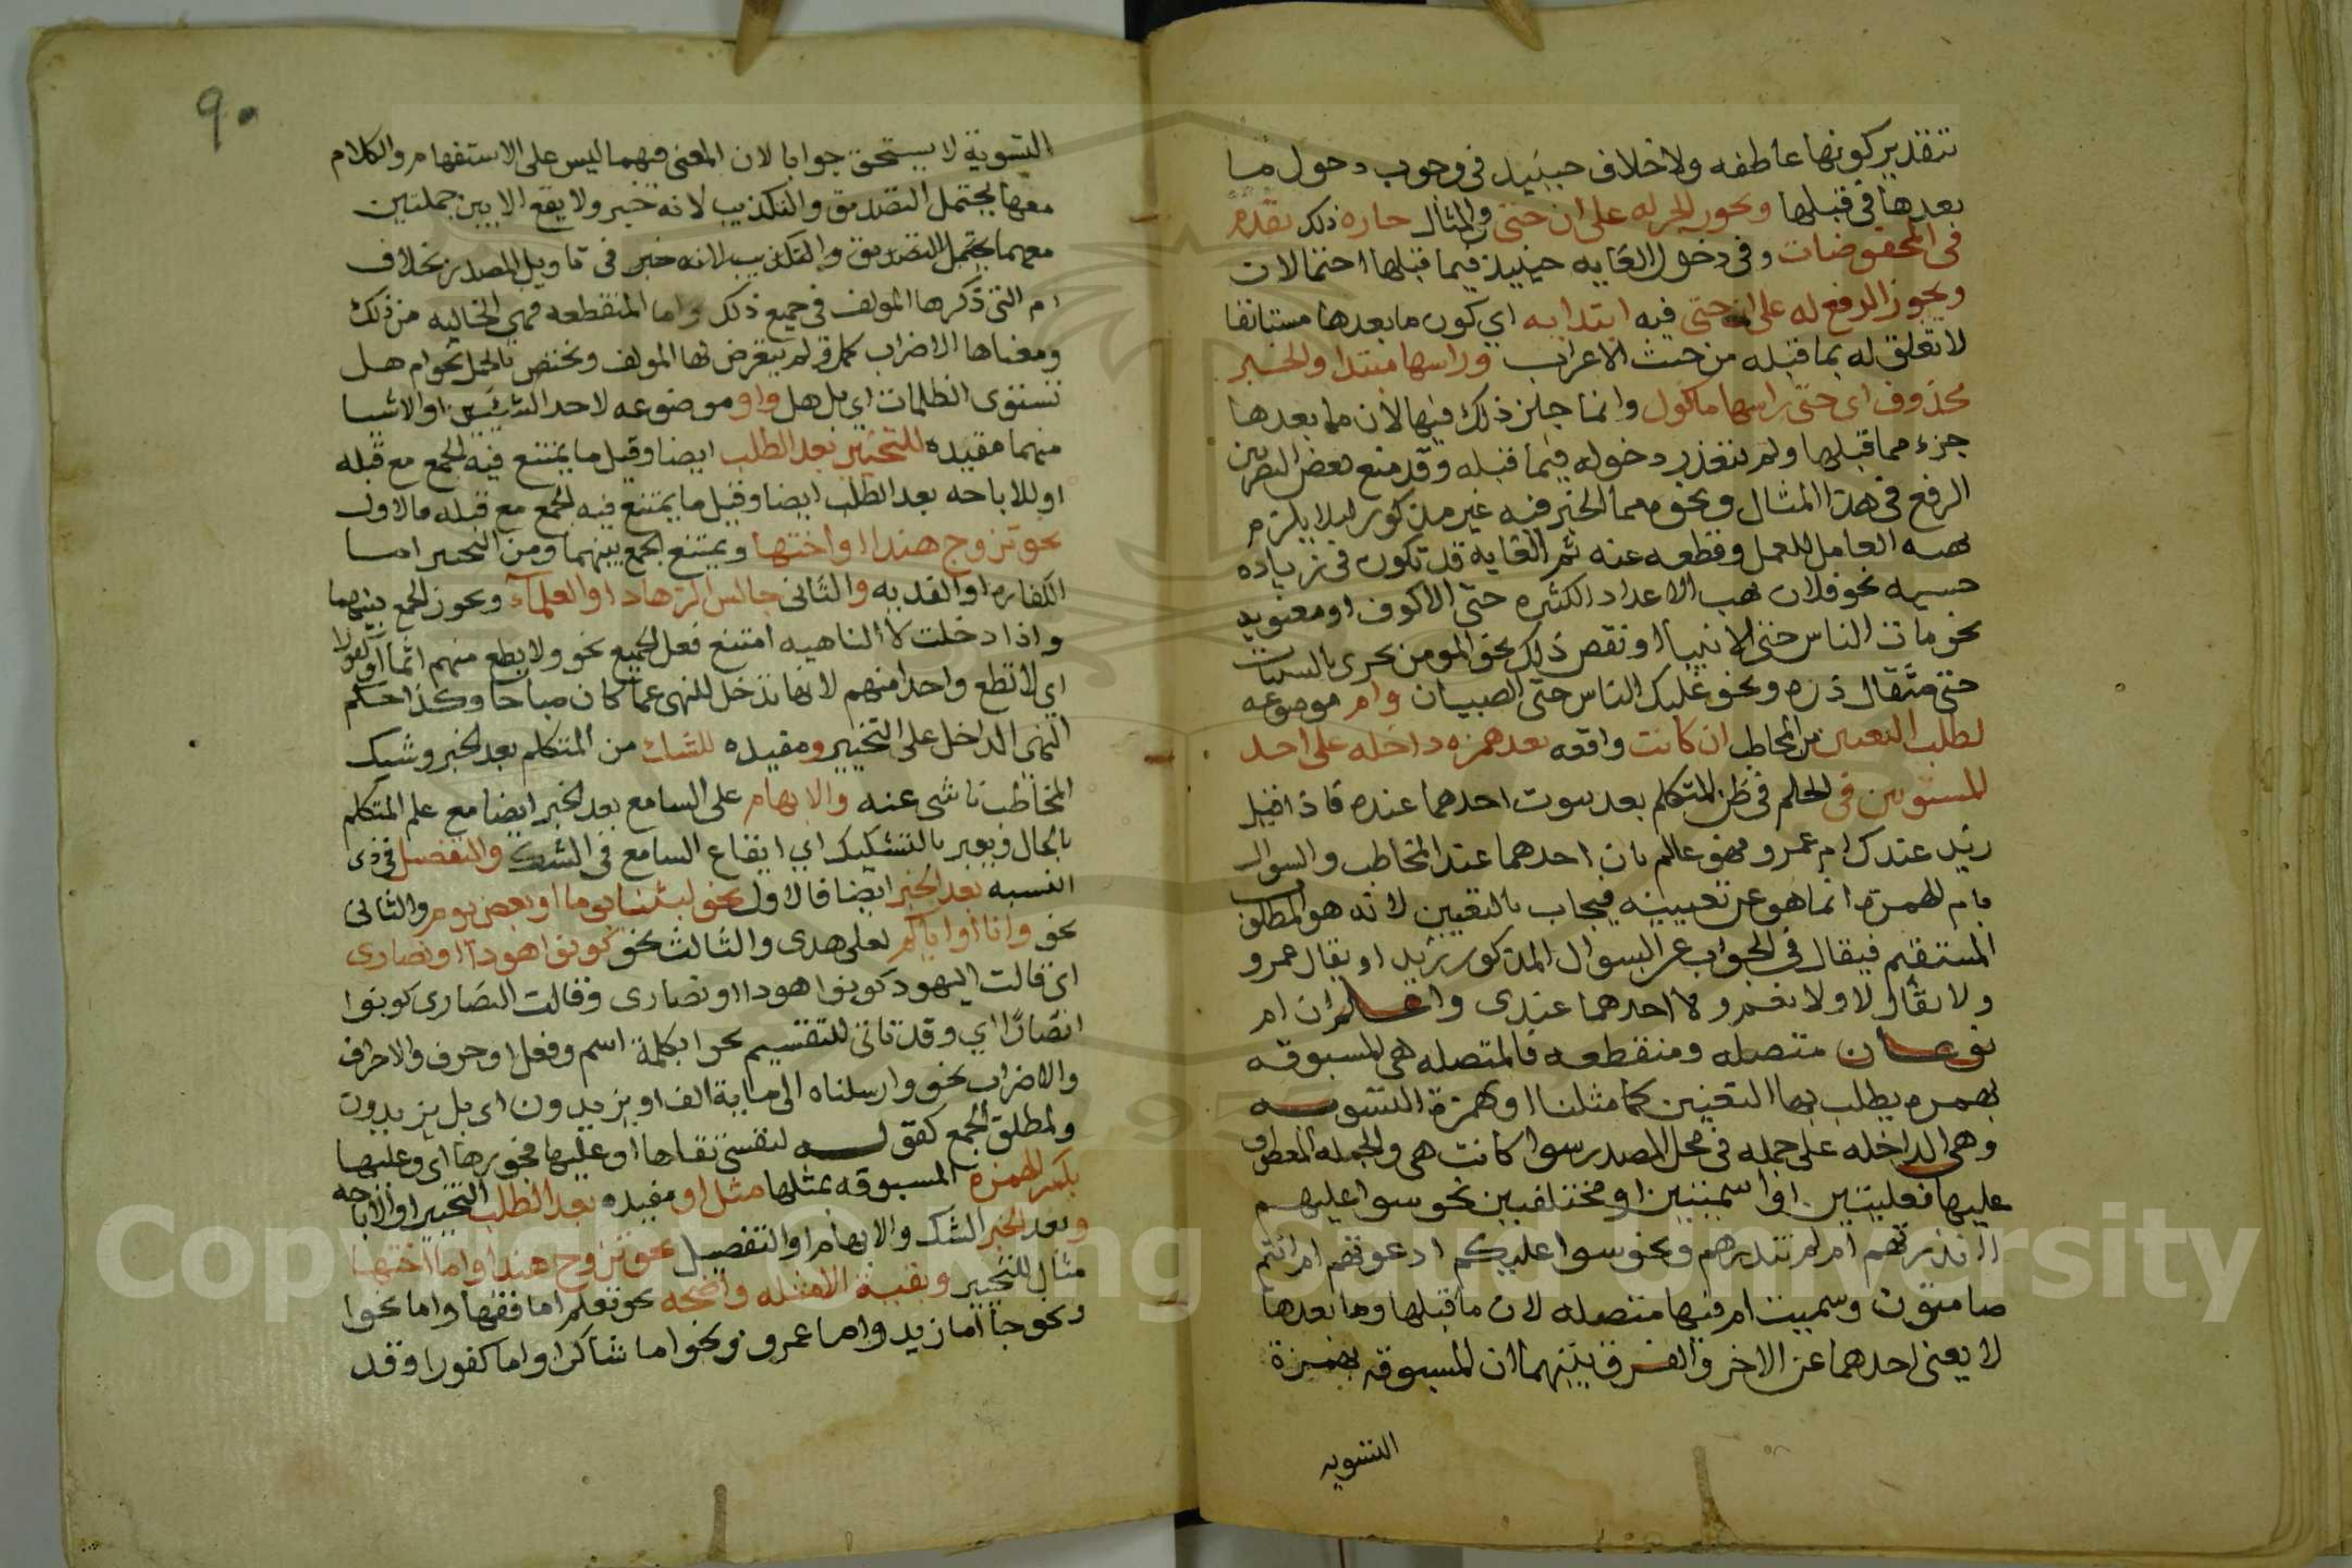 بتقدير كونها عاطفه ولا خلاف حينيد في وجوب دخول ما
بعدها في قبلها ويجوز الجر له على ان حتى والمثال جاره ذلك بقدم
في المخفوضات وفي دخول الغايه حينيذ فيما قبلها احتمالات
ويجوز الرفع له على ان حتى فيه ابتدايه اي كون ما بعدها مستانفا
لا تعلق له بما قبله من حيث الاعراب وراسها مبتدا والخبر
محذوف اي حتى راسها ماكول وانما جاز ذلك فيها لان ما بعدها
جزء مما قبلها ولم يتعذر دخوله فيما قبله وقد منع بعض البصريين
الرفع في هذا المثال ونحوه مما الخبر فيه غير مذكور ليلا يلزم
العامل للعمل وقطعه عنه ثم الغايه قد تكون في زياده
حسيه نحو فلان يهب الاعداد الكثيره حتى الالوف او معنويه
نحو مات الناس حتى الانبيا او نقص ذلك نحو المومن يجزى بالسيات
حتى مثقال ذره ونحو غلبك الناس حتى الصبيان وام موضوعه
لطلب التعيين من المخاطب ان كانت واقعه بعد همزه داخله على احد
المستويين في الحكم في ظن المتكلم بعد ثبوت احدهما عنده فاذا قيل
زيد عندك ام عمرو فهو عالم بان احدهما عند المخاطب والسوال
بام الهمزه انما هو عن تعيينه فيجاب بالتعيين لانه هو المطلوب
المستفهم فيقال في الجواب عن السوال المذكور زيد او يقال عمرو
ولا يقال لا ولا نعم ولا احدهما عندي واعلم ان ام
نوعان متصله ومنقطعه فالمتصله هي المسبوقه
بهمزه يطلب بها التعيين كما مثلنا او بهمزة التسويه
وهي الداخله على جمله في محل المصدر سوا كانت هي والجمله المعطوف
عليها فعليتين او اسميتين او مختلفيين نحو سوا عليهم
اانذرتهم ام لم تنذرهم ونحو سوا عليكم ادعوتهم ام انتم
صامتون وسميت ام فيها متصله لان ما قبلها وما بعدها
لا يغني احدهما عن الاخر والفرق بينهما ان المسبوقه بهمزة
التسويه
٩٠
التسوية لا يستحق جوابا لان المعنى فيهما ليس على الاستفهام والكلام
معها يحتمل التصديق والتكذيب لانه خبر ولا يقع الا بين جملتين
معهما يحتمل التصديق والتكذيب لانه خبر في تاويل المصدر بخلاف
ام التي ذكرها المولف في جميع ذلك واما المنقطعه فهي الخاليه من ذلك
ومعناها الاضراب كما قر لم يتعرض لها المولف وتختص بالجمل نحو ام هل
تستوى الظلمات اي بل هل واو موضوعه لاحد الشيئين او الاشيا
منهما مقيده للتخيير بعد الطلب ايضا وقيل ما يمتنع فيه الجمع مع قبله
او للاباحه بعد الطلب ايضا وقيل ما يمتنع فيه الجمع مع قبله فالاول
نحو تزوج هندا او اختها ويمتنع الجمع بينهما ومن التخيير اما
الكفاره او الفديه والثاني جالس الزهاد او العلمآء ويجوز الجمع بينهما
واذا دخلت لا الناهيه امتنع فعل الجميع نحو ولا تطع منهم اثما او كفورا
اي لا تطع واحدا منهم لانها تدخل للنهي عما كان مباحا وكذا حكم
النهي الداخل على التخيير ومقيده للشك من المتكلم بعد الخبر وشك
المخاطب ناشي عنه والابهام على السامع بعد الخبر ايضا مع علم المتكلم
بالحال ويعبر بالتشكيك اي ايقاع السامع في الشك والتفصيل في ذي
النسبه بعد الخبر ايضا فالاول نحو لبثنا يوما او بعض يوم والثاني
نحو وانا او اياكم لعلى هدى والثالث نحو كونوا هودا او نصارى
اي قالت اليهود كونوا هودا او نصارى وقالت النصارى كونوا
انصارا اي وقد تاتي للتقسيم نحو الكلمة اسم وفعل او حرف والاحراف
والاضراب نحو وارسلناه الى ماية الف او يزيدون اي بل يزيدون
ولمطلق الجمع كقوله لنفسي تقاها او عليها فجورها اي وعليها
بكسر الهمزه المسبوقه بمثلها مثل او مفيده بعد الطلب التخيير او الاباحه
وبعد الخبر الشك والابهام او التفصيل نحو تزوج هندا واما اختها
مثال للتخيير وبقية الامثله واضحه نحو تعلم اما فقها واما نحوا
ونحو جاا اما زيد واما عمرو ونحو اما شاكرا واما كفورا وقد
Copyright © King Saud University